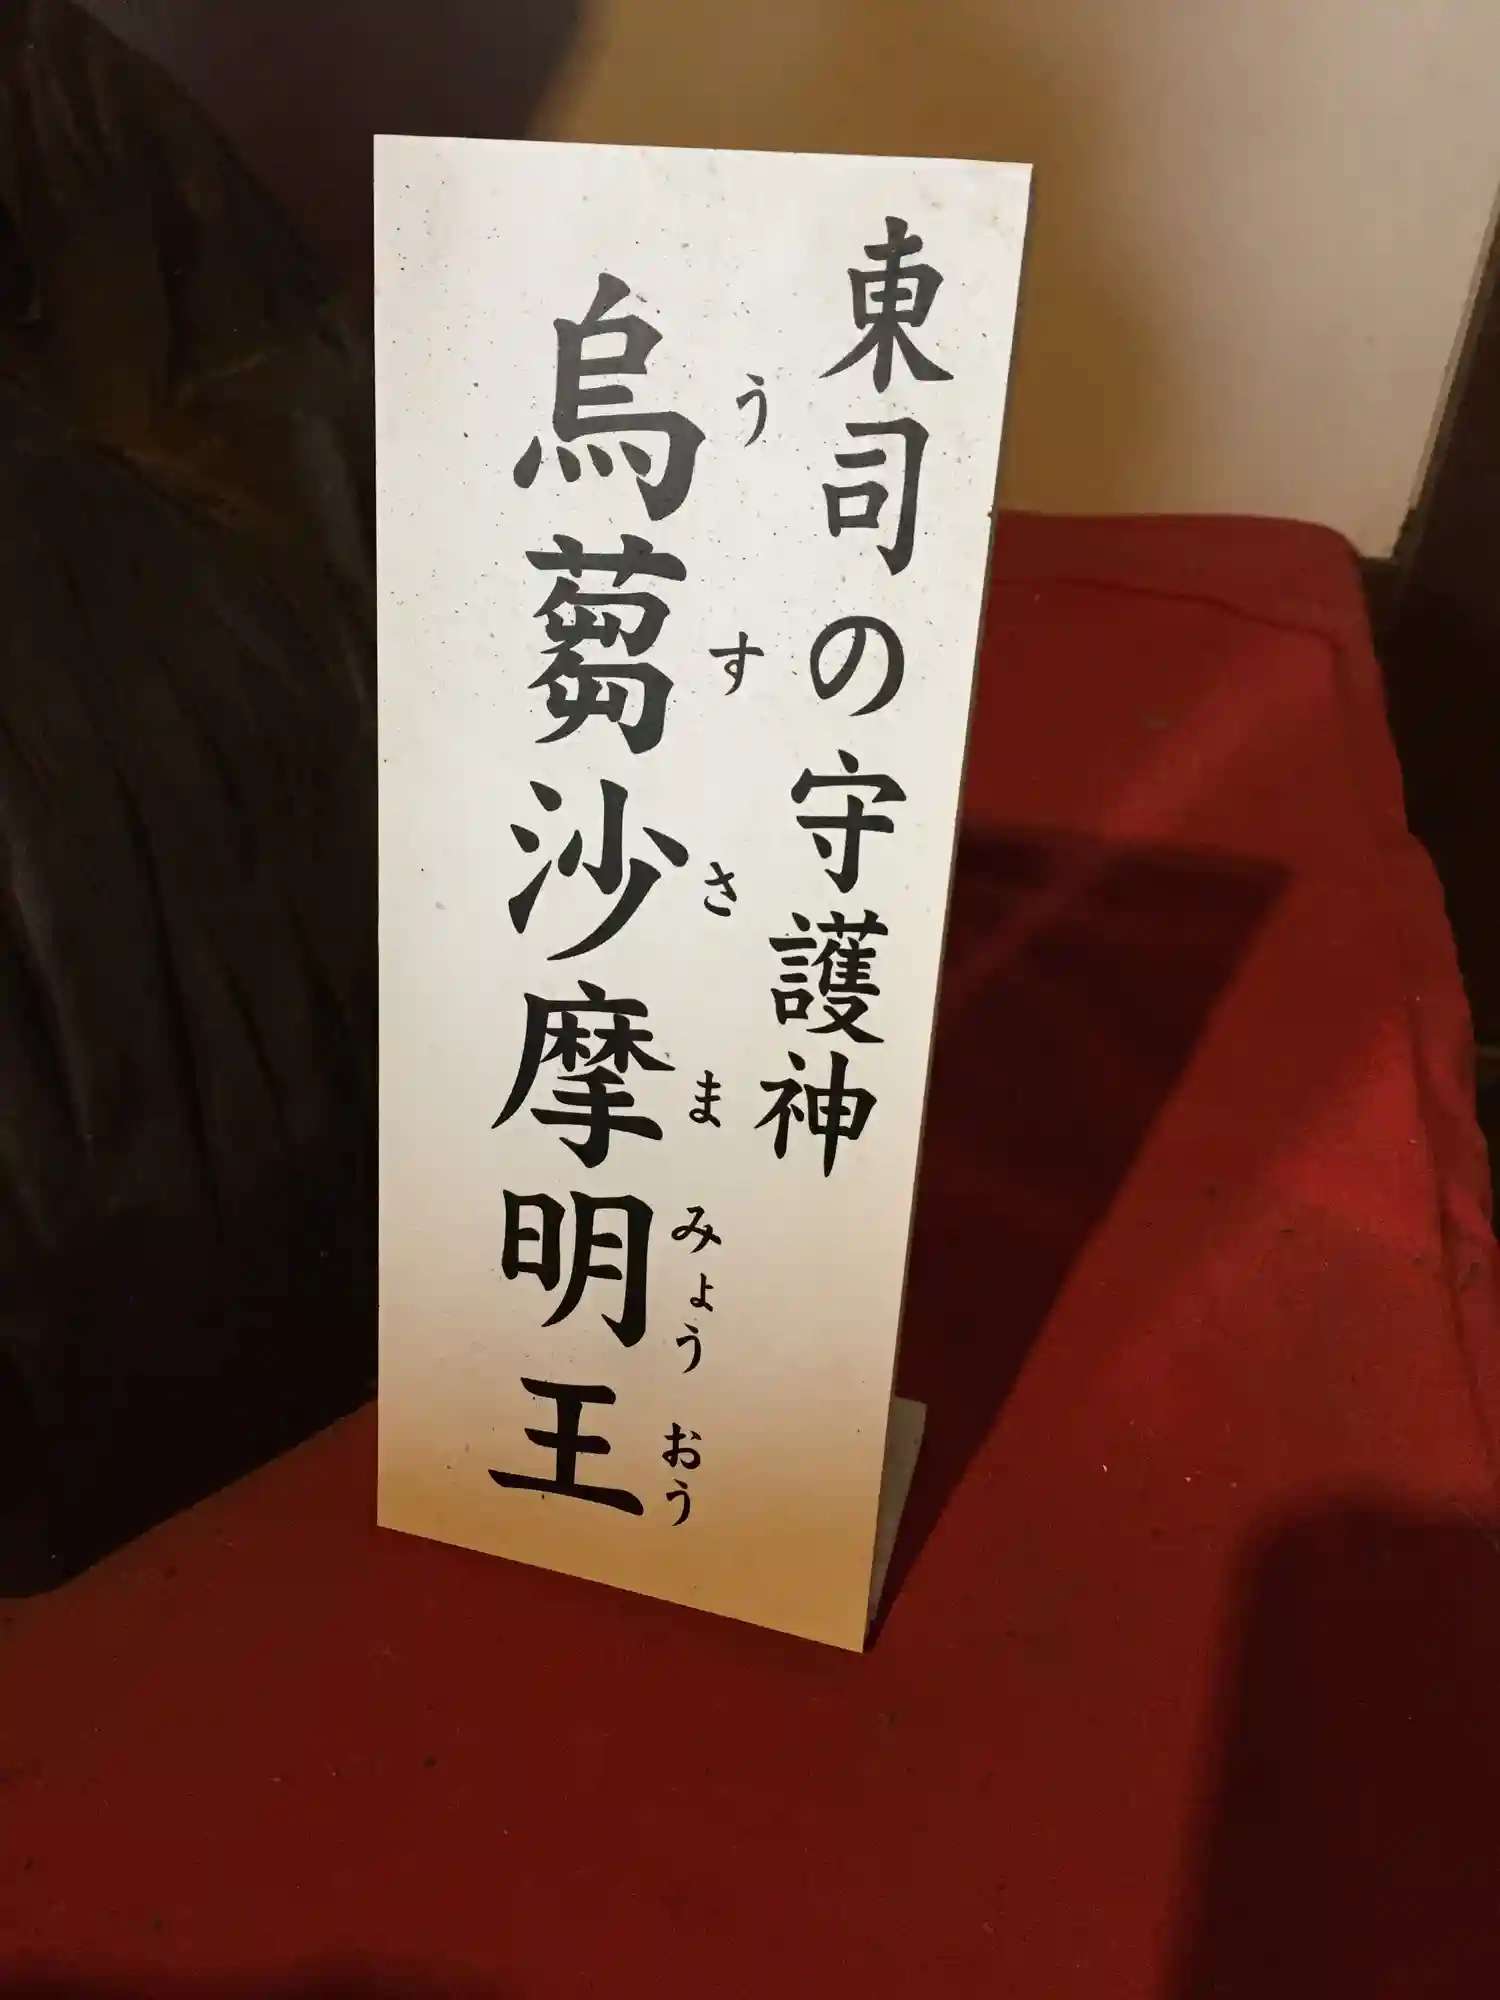 東司の守護神
烏蒭沙摩明王
うすさまみょうおう